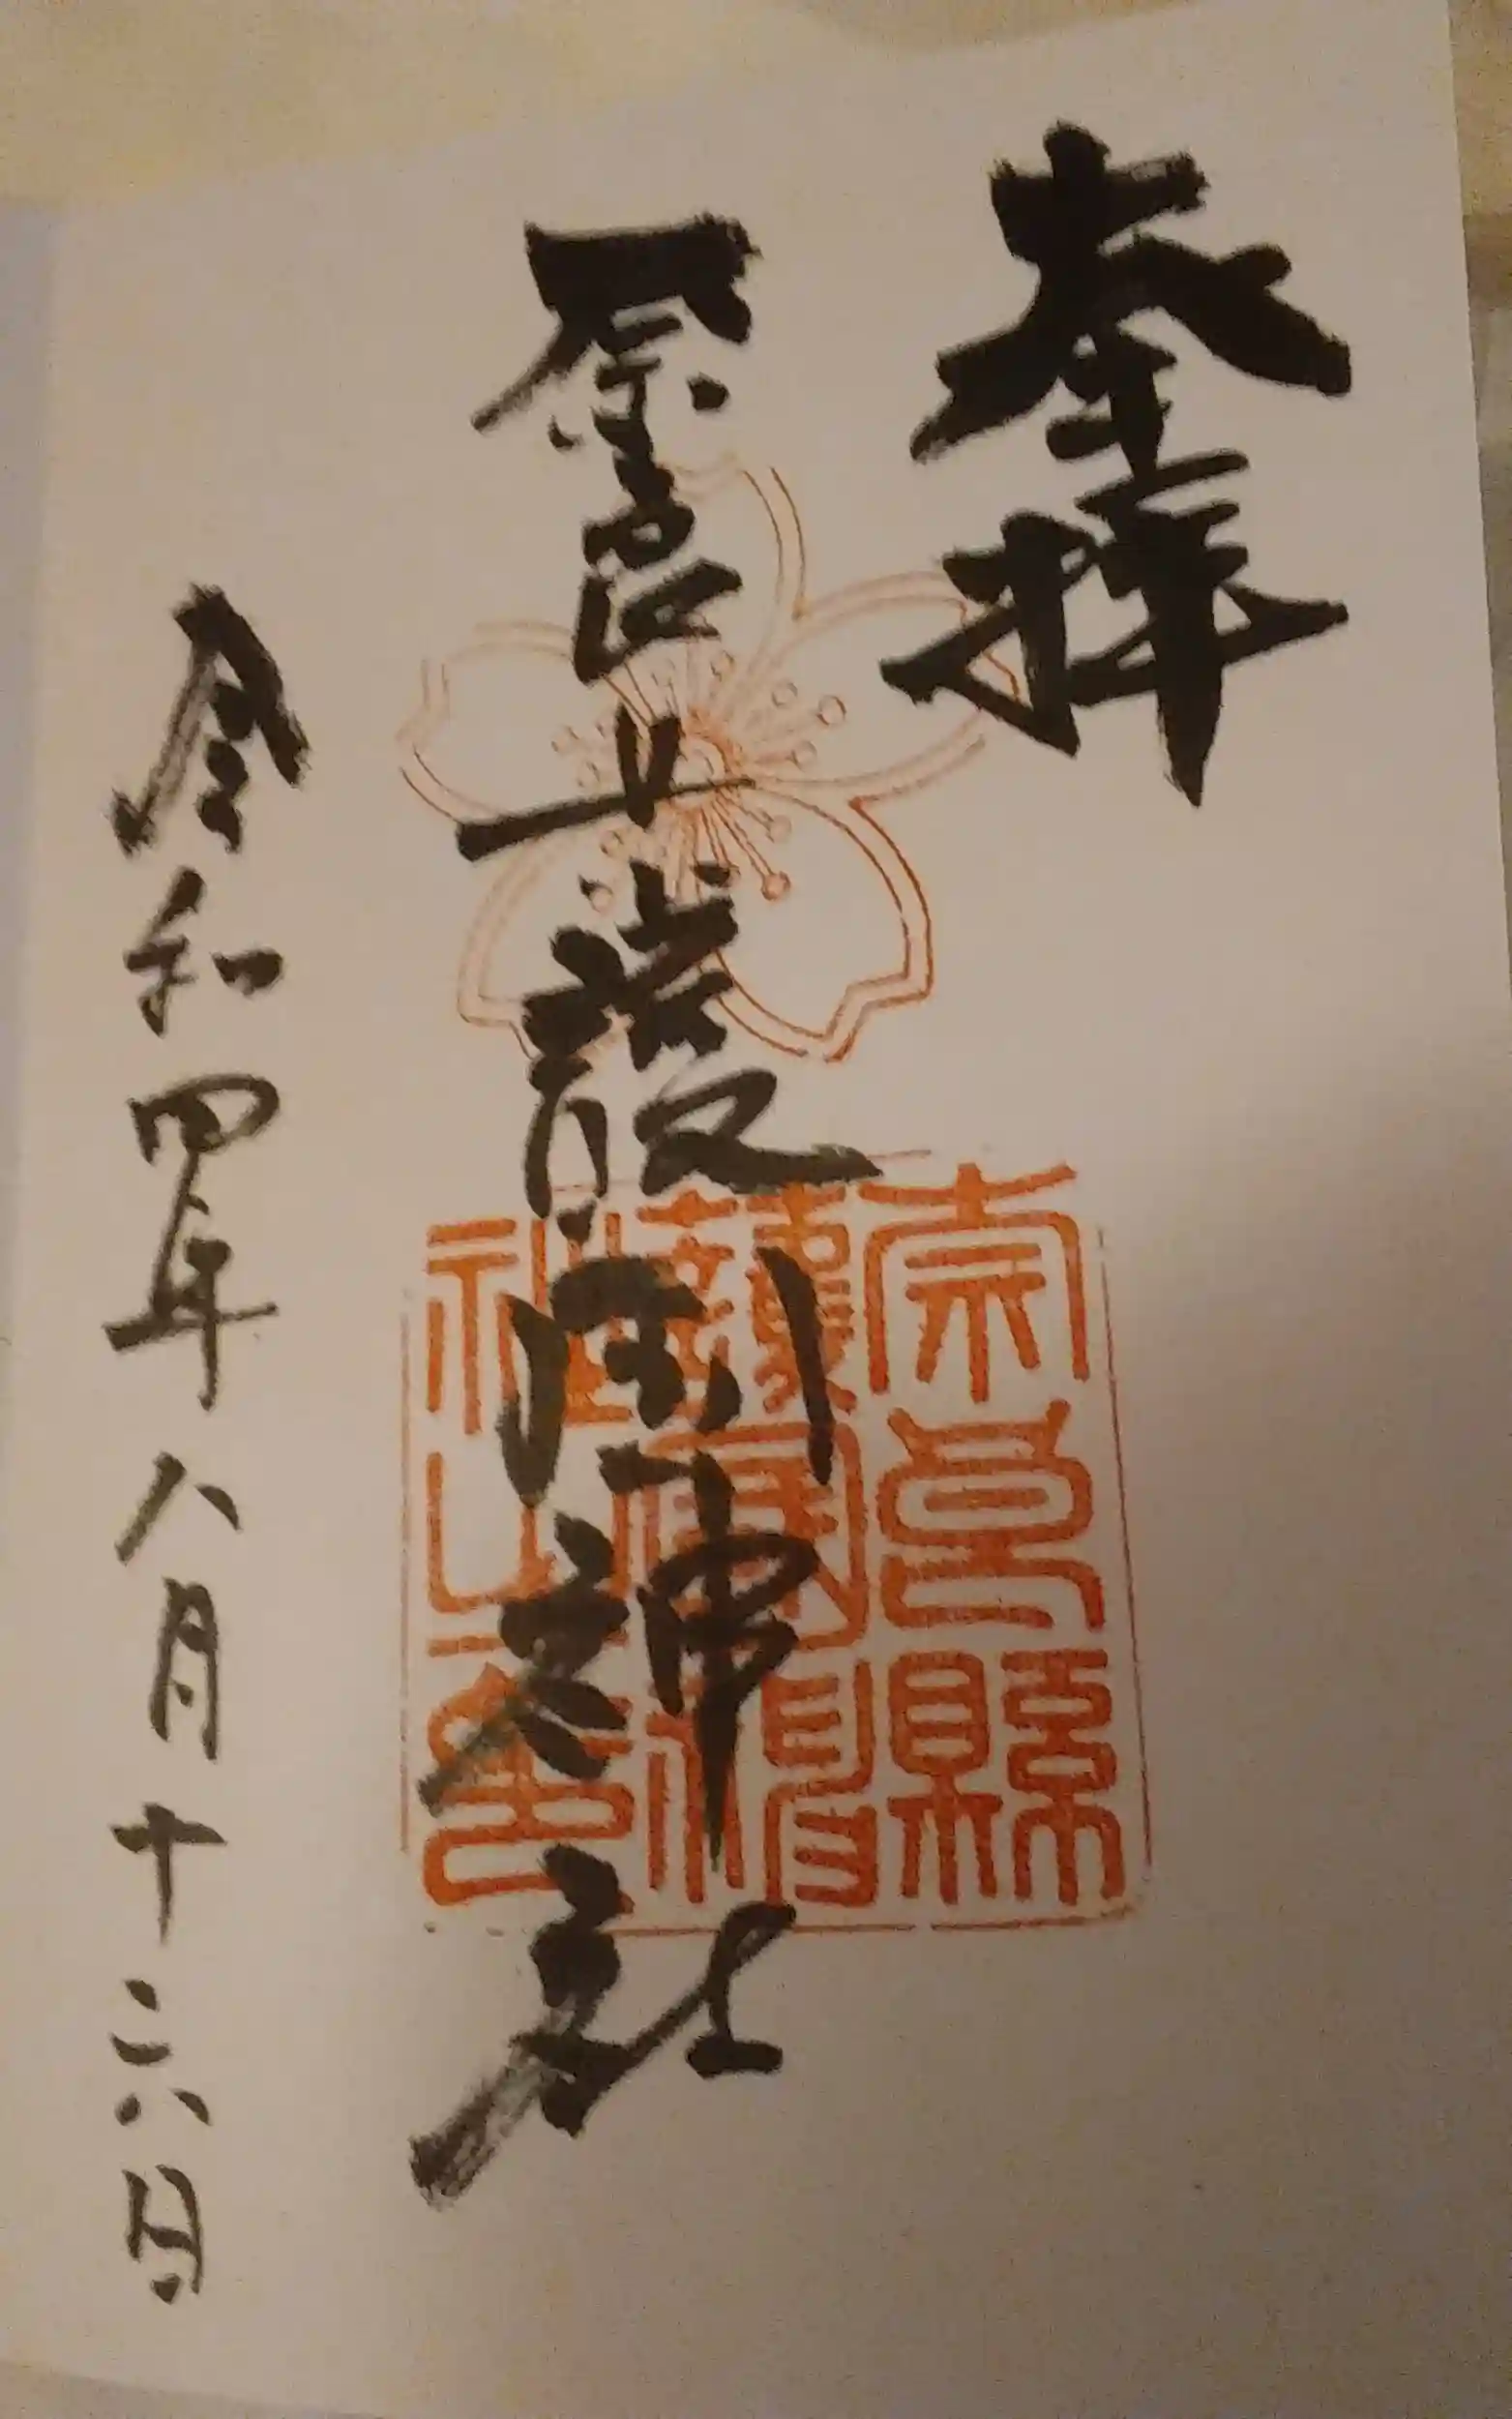 奉拝
奈良県護国神社
令和四年八月十六日
奈良縣
護國神
社之印